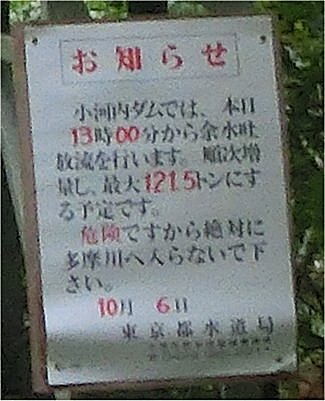 お知らせ
小河内ダムでは、本日
13時00分から余水吐
放流を行います。順次増
量し、最大121.5トンにす
る予定です。
危険ですから絶対に
多摩川へ入らないで下
さい。
10月 6日
東京都水道局